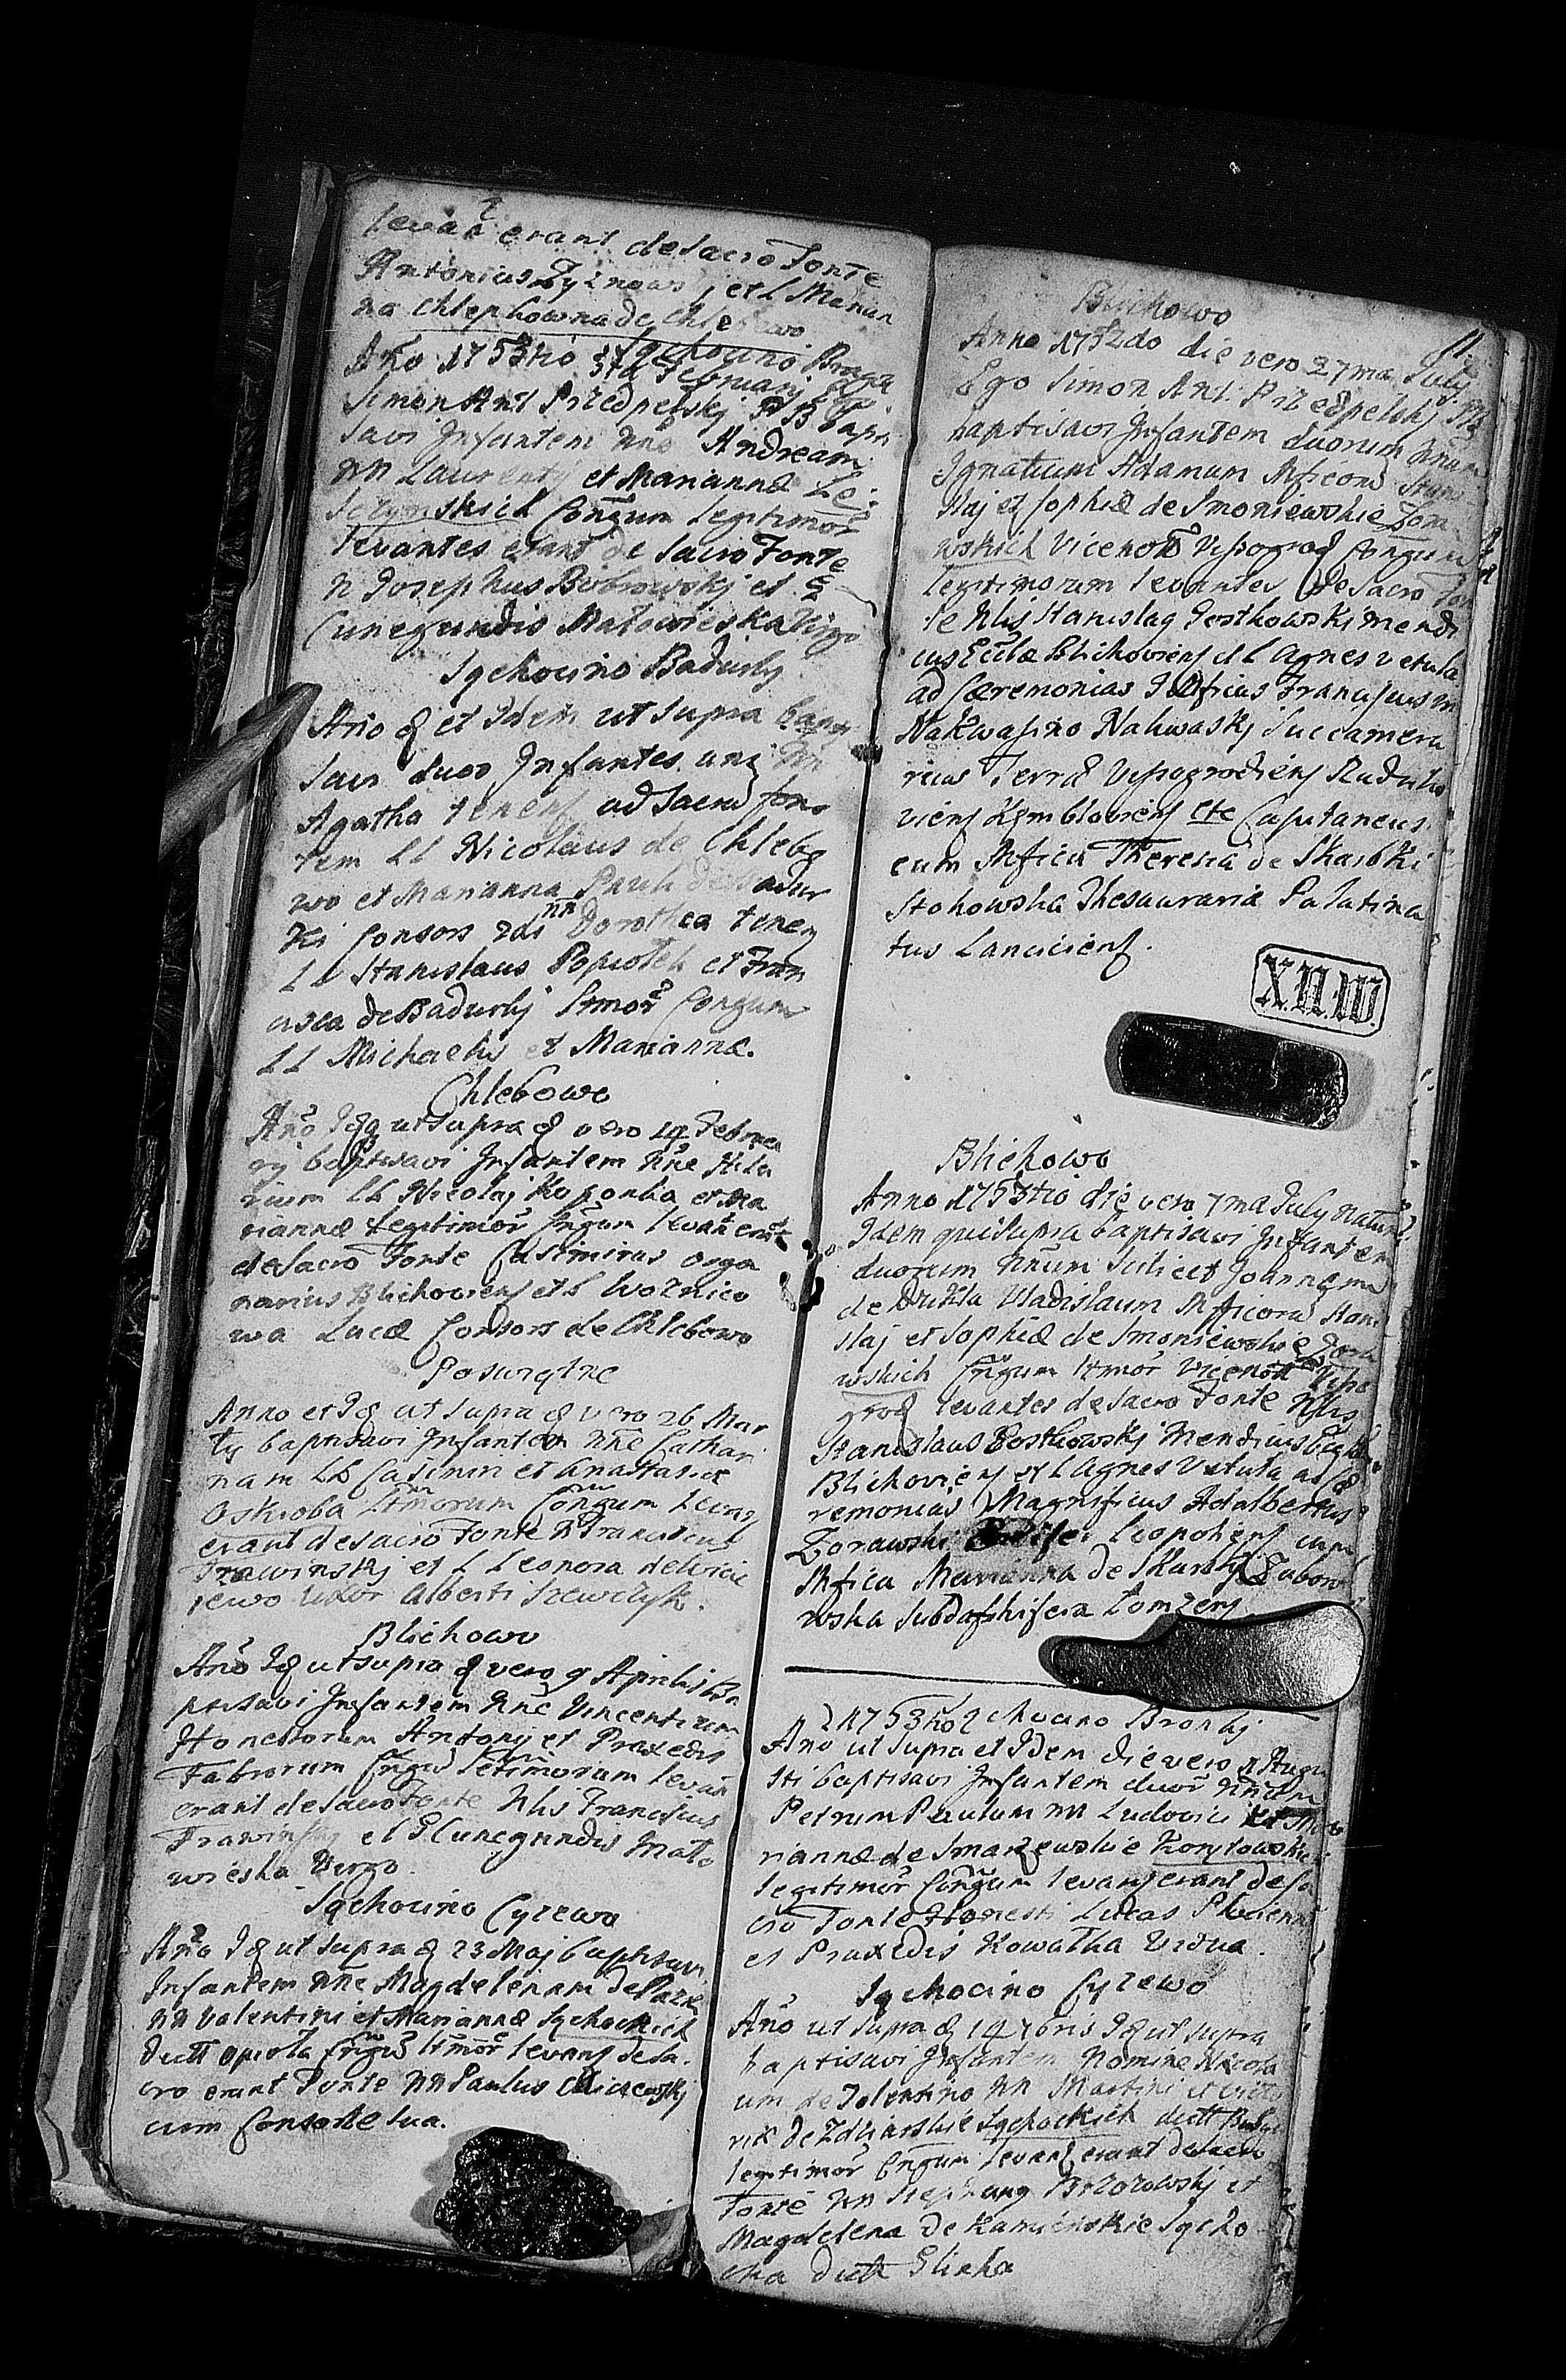 levan̄ erant de Sacro Fonte
Antonius et L Marian
na Chlepkowna de Chlebowo
Sęchocino Bragi
Ano 1753tio 3tia Februarij Ego
Simon Ant Przedpelskj PB bapti
savi Infantem nne Andream
NN Laurentij et Mariannæ Le
skich Congum Legitimor
levantes erant de Sacro Fonte
N Josephus Bobrowskj et G
Cunegundis Matowieska Virgo
Sęchocino Badurky
Ano & et Idem ut supra bapti
savi duos Infantes uni nn
Agatha tenen ad Sacrū fon
tem LL Nicolaus de Chlebo
wo et Marianna Pauli de Badur
ki Consors 2di nn Dorothea tenen
LL Stanislaus Popiołek et Fran
cisca de Badurkj ltmor Congum
LL Michaelis et Mariannæ.
Chlebowo
Ano Idq ut supra d vero 14 Februa
rij baptisavi Infantem nne Hila
rium LL Nicolaj Koponka et Ma
riannæ Legitimor Cngum levan erant
de Sacro Fonte Casimirus orga
narius Blichoviens et L Woznico
wa Lucæ Consors de Chlebowo
Posurętne
Anno et Id ut supra d vero 26 Mar
tij baptisavi Infantem nne Cathari
nam LL Casimiri et Anastasiæ
Oskroba Ltmorum Congum Levan
erant de Sacro Fonte N Franciscus
Trawinskj et L Leonora de
rewo Uxor Alberti Szewczyk.
Blichowo
Ano Id ut supra d vero 9 Aprilis ba
ptisavi Infantem nne Vincentium
Honestorum Antonij et Praxedis
Fabrorum Cngū letimorum levan
erant de Sacro Fonte Nlis Franciscus
Trawinskj et G Cunegundis Mato
wieska Virgo.
Sęchocino Cyrewo
Ano Id ut supra d 23 Maj baptisavi
Infantem nne Magdalenam de Pazzi
NN Valentini et Mariannæ Sęchockich
dictt opiola Cngū ltmor levans de Sa
cro erant Fonte NN Paulus
cum Consorte sua.
11.
Blichowo
Anno 1752do die vero 27ma Julij
Ego Simon Ant. Przedpelskj PB
baptisavi Infantem duorum nnum
Ignatium Adamum Mficorū Stani
slaj et Sophiæ de Smoniewskie Zom
wskich Vicenott Vissogrod Congium
legitimorum levantes de Sacro Fon
te Nlis Stanislaq Gostkowski mendi
cus Ecclæ Blichoviens et L Agnes vetula
ad Cæremonias Mficus Franciscus in
Nakwasino Nakwaskj Succamera
rius Terræ Vissogrodiens Raducko
viens Kembloviens etc Capitaneus
cum Mfica Theresia de Skarbki
Stokowska Thesauraria Palatina
tus Lanciciens.
X.II.IW.
Blichowo
Anno 1753tio die vero 7ma Julij natum
Idem qui supra baptisavi Infantem
duorum nnum scilicet Johannem
de Dukla Vladislaum Mficorū Stani
slaj et Sophiæ de Smoniewskie Zom
wskich Cngum ltmor Vicenott Visso
grod levantes de Sacro Fonte Nlis
Stanislaus Gostkowskj Mendicus Ecclæ
Blichoviens et L Agnes Vetula ad Cæ
remonias Magnificus Adalbertus
Zorawski Leopoliens cum
Mfica Marianna de Skarbki Zabom
wska Subdapifera Lomzens
1753tio Sęchocino Bronky
Ano ut supra et Idem die vero Augu
sti baptisavi Infantem duor nnum
Petrum Paulum NN Ludovici et Ma
riannæ de Smarzewskie Korytowskich
legitimor Cngum levans erant de Sa
cro Fonte Honesti Lucas
et Praxedis Kowalka Vidua.
Sęchocino Cyrewo
Ano ut supra d 14 7bris Id ut supra
baptisavi Infantem Nomine Nicola
um de Tolentino NN Martini et Victo
riæ de Zdziarskie Sęchockich dictt
legitimor Cngum levans erant de Sacro
Fonte NN Stephang Brzozowskj et
Magdelena de Kamienskie Sęcho
cka dicta Glinka